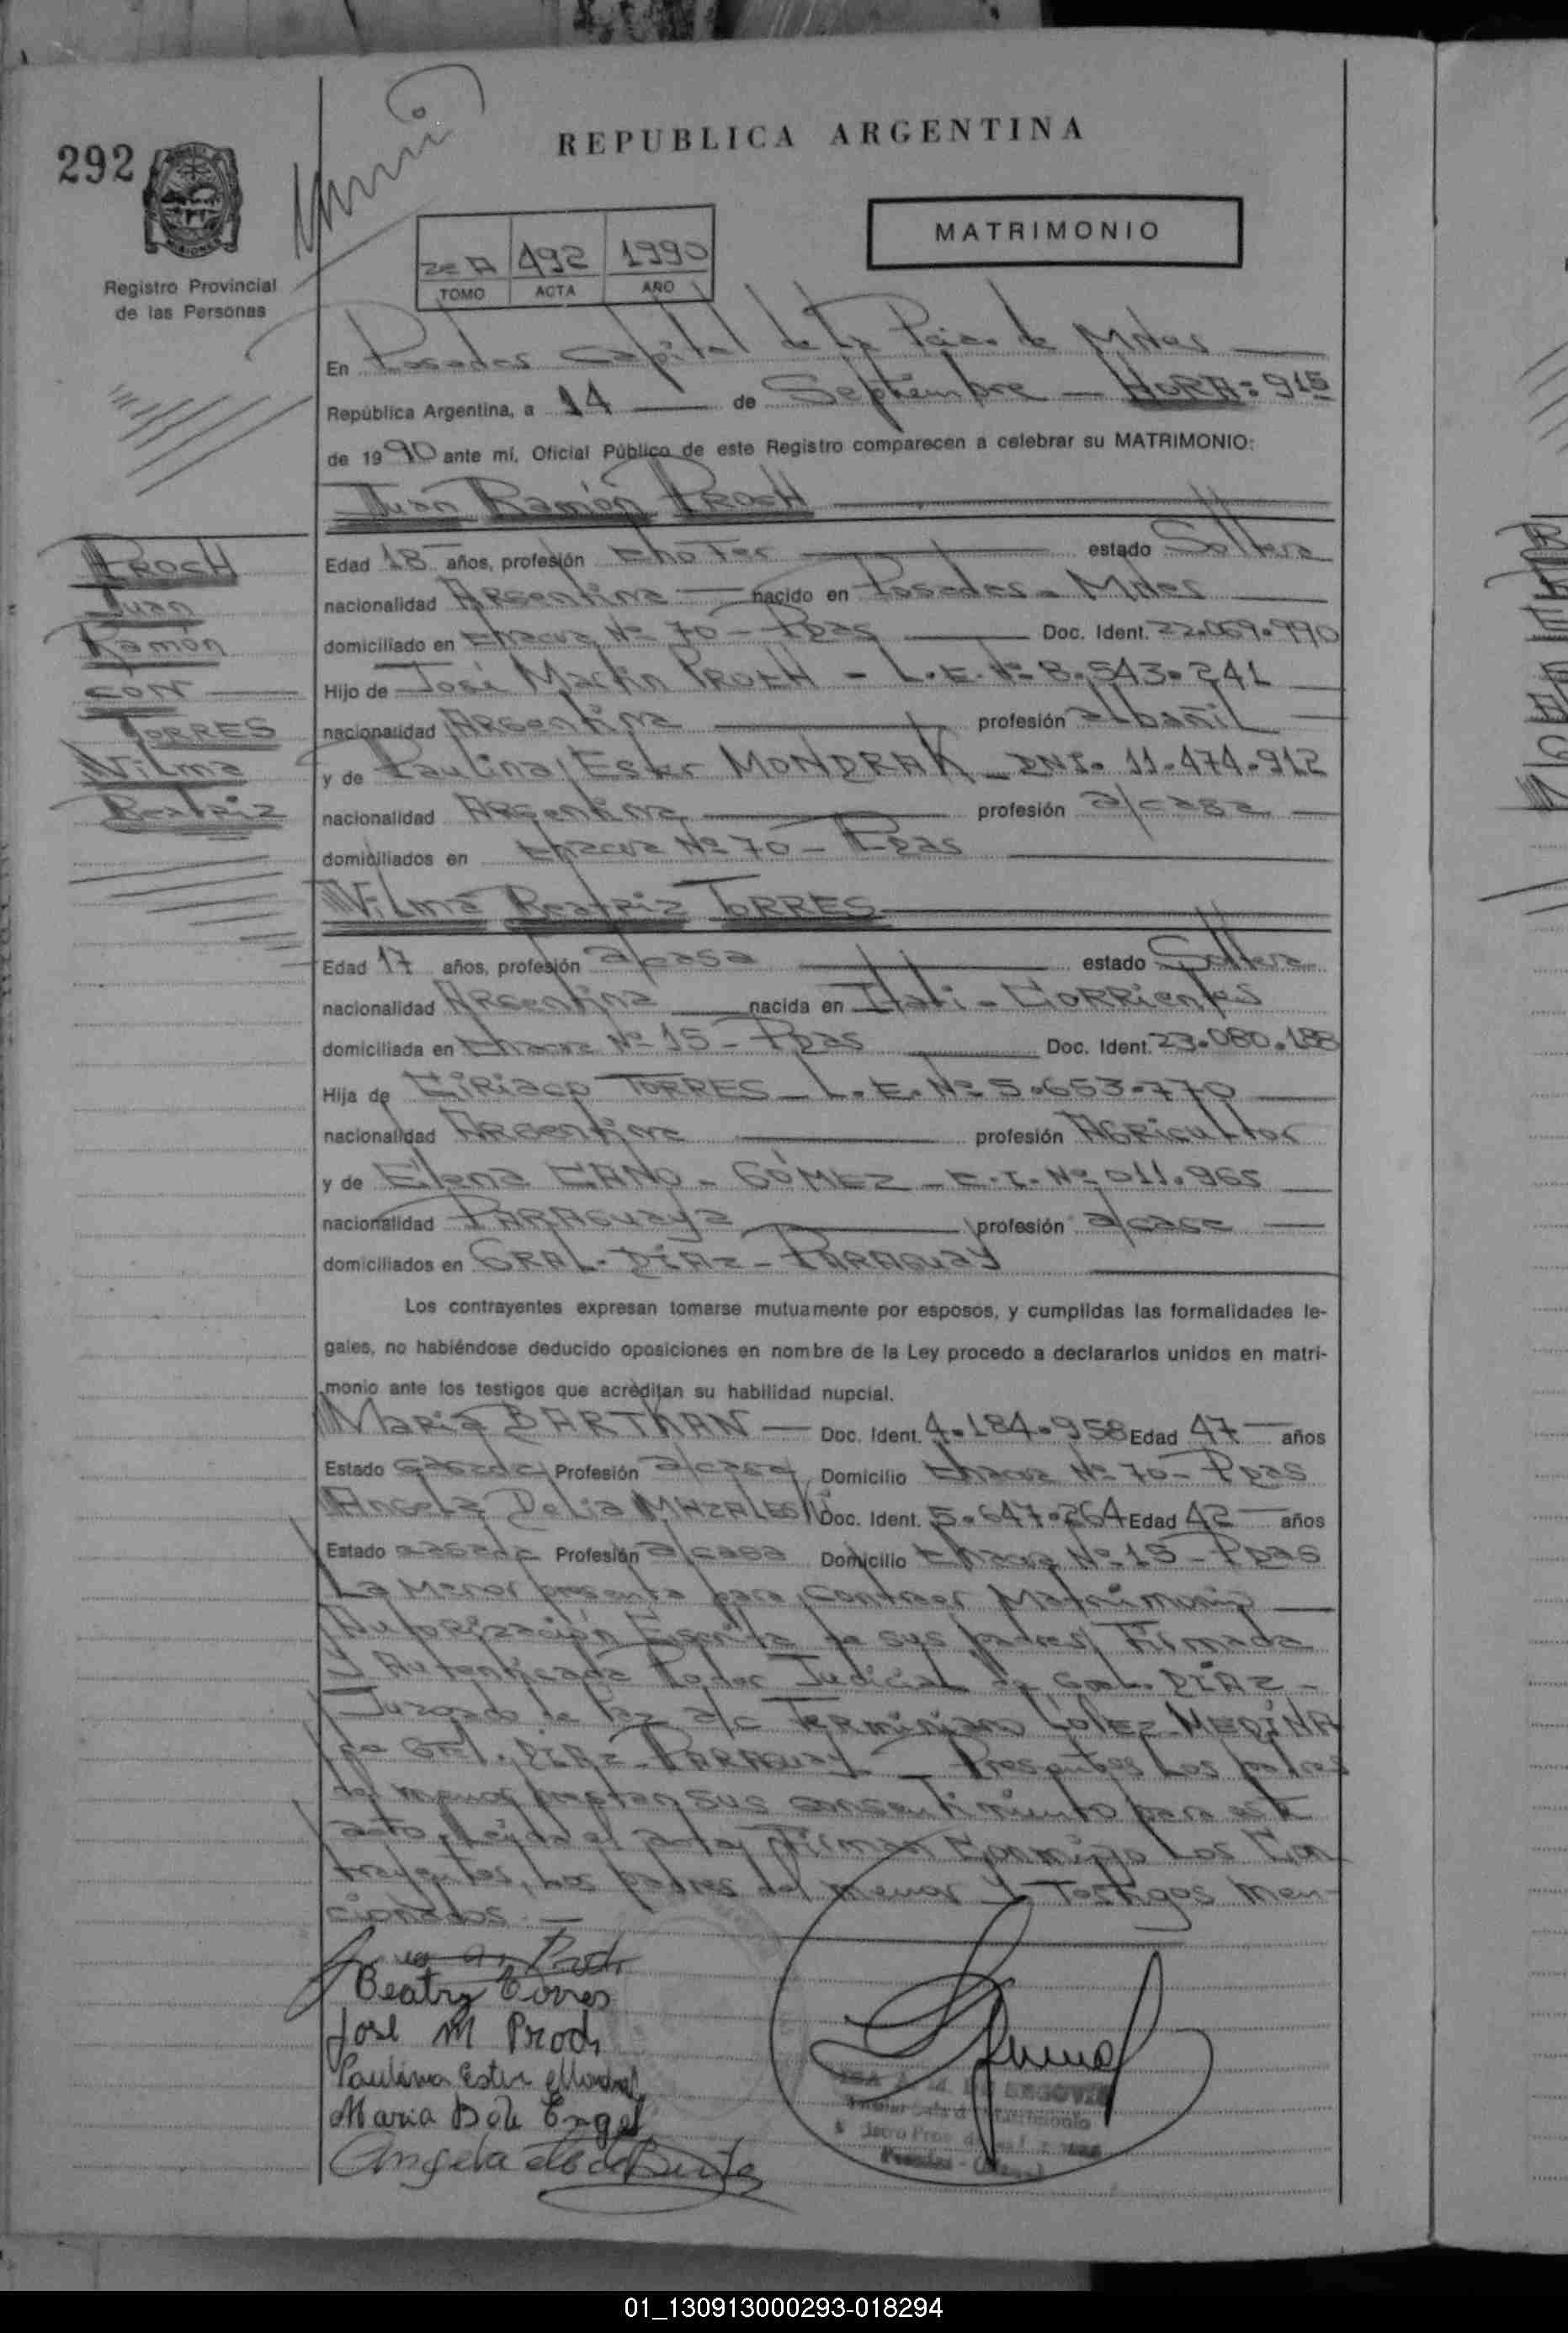 292
REPUBLICA ARGENTINA
MATRIMONIO
2º A 492 1990
TOMO ACTA AÑO
MISIONES
Registro Provincial
de las Personas
En Posadas Capital de la Pcia. de Mnes
República Argentina, a 14 de Septiembre — HORA: 915
de 1990 ante mí, Oficial Público de este Registro comparecen a celebrar su MATRIMONIO:
Juan Ramón PROCH
Edad 18 años, profesión chofer estado Soltero
nacionalidad Argentina nacido en Posadas - Mnes
domiciliado en Chacra Nº 70 - Pdas Doc. Ident. 22.069.990
Hijo de José Martin PROCH - L.E. Nº 8.543.241
nacionalidad Argentina profesión albañil
y de Paulina Ester MONDRAK - DNI. 11.474.912
nacionalidad Argentina profesión a/casa
domiciliados en Chacra Nº 70 - Pdas
PROCH
Juan
Ramón
CON
TORRES
Wilma
Beatriz
Wilma Beatriz TORRES
Edad 17 años, profesión a/casa estado Soltera
nacionalidad Argentina nacida en Itati - Corrientes
domiciliada en Chacra Nº 15 - Pdas Doc. Ident. 23.080.188
Hija de Ciriaco TORRES - L.E. Nº 5.653.770
nacionalidad Argentina profesión Agricultor
y de Elena CANO - GÓMEZ - C.I. Nº 011.965
nacionalidad PARAGUAYA profesión a/casa
domiciliados en GRAL. DIAZ - PARAGUAY
Los contrayentes expresan tomarse mutuamente por esposos, y cumplidas las formalidades le-
gales, no habiéndose deducido oposiciones en nombre de la Ley procedo a declararlos unidos en matri-
monio ante los testigos que acreditan su habilidad nupcial.
Maria BARTMAN — Doc. Ident. 4.184.958 Edad 47 años
Estado casada Profesión a/casa Domicilio Chacra Nº 70 - Pdas
Angela Delia Doc. Ident. 5.647.264 Edad 42 años
Estado casada Profesión a/casa Domicilio Chacra Nº 15 - Pdas
La Menor presenta para contraer Matrimonio
Autorización Escrita de sus padres Firmada
Y Autenticada Poder Judicial de Gral. DIAZ -
Juzgado de Paz a/c LOPEZ MEDINA
de Gral. DIAZ - PARAGUAY Presentes Los padres
del menor prestan sus consentimiento para este
acto, Leída el acta, Firman Conmigo Los Con
trayentes, Los padres del menor Y Testigos Men-
cionados. —
Proch
Beatriz Torres
José M Proch
Paulina Ester Mondrak
Maria B de Engel
Angela
DE SEGOVIA
01_130913000293-018294